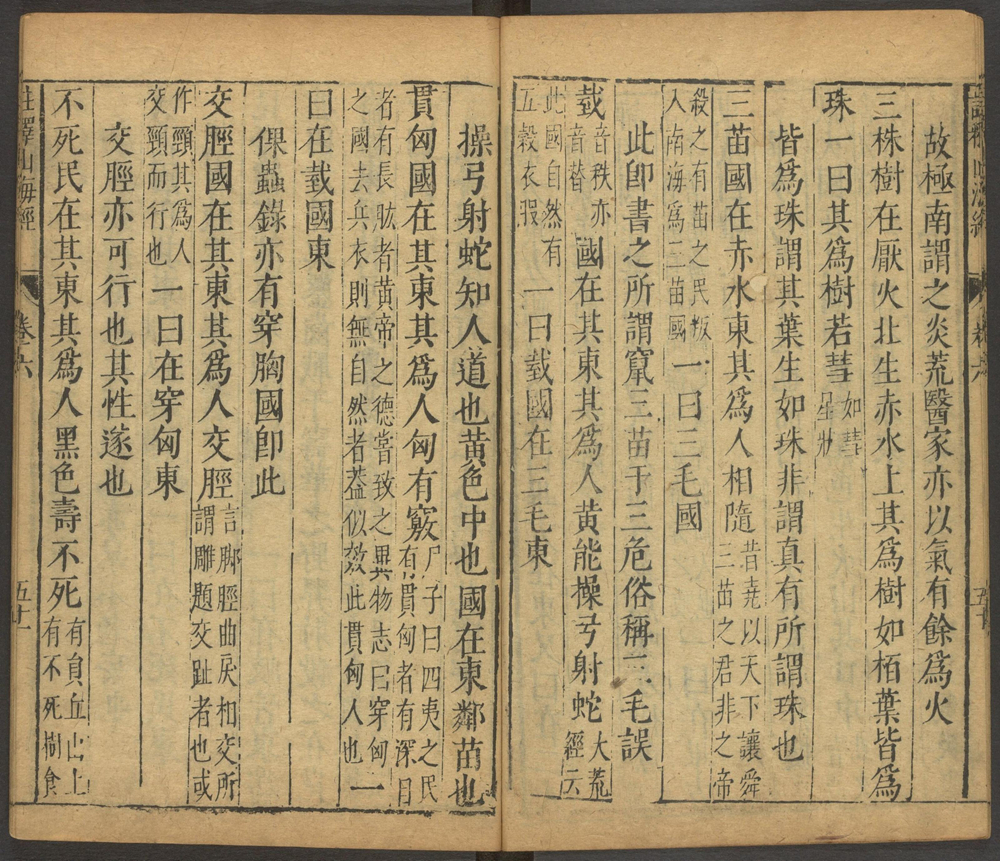 故極南謂之炎荒醫家亦以氣有餘爲火
三株樹在厭火北生赤水上其爲樹如栢葉皆爲
珠一曰其爲樹若彗如彗星狀
皆爲珠謂其葉生如珠非謂真有所謂珠也
三苗國在赤水東其爲人相隨昔堯以天下讓舜三苗之君非之帝
殺之有苗之民叛入南海爲三苗國一曰三毛國
此卽書之所謂竄三苗于三危俗稱三毛誤
臷音秩亦音替國在其東其爲人黄能操弓射蛇大荒經云
此國自然有五穀衣服一曰臷國在三毛東
操弓射蛇知人道也黄色中也國在東鄰苗也
貫匈國在其東其爲人匈有竅尸子曰四夷之民有貫匈者有深目
者有長肱者黄帝之德嘗致之異物志曰穿匈之國去兵衣則無自然者葢似效此貫匈人也一
曰在臷國東
倮蟲錄亦有穿胸國卽此
交脛國在其東其爲人交脛言脚脛曲戾相交所謂雕題交趾者也或
作頸其爲人交頸而行也一曰在穿匈東
交脛亦可行也其性遂也
不死民在其東其爲人黑色壽不死有員丘山上有不死樹食
註釋山海經
卷六
五十一